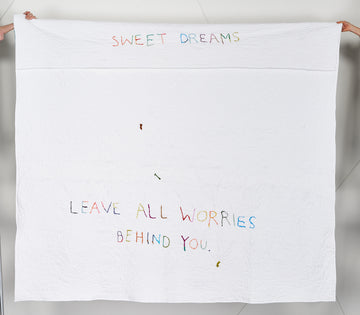 SWEET DREAMS
LEAVE ALL WORRIES
BEHIND YOU.